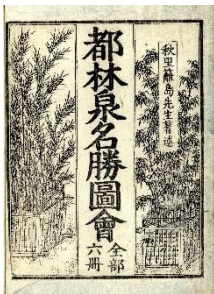 秋里籬島先生著述
都林泉名勝圖會
全部
六冊